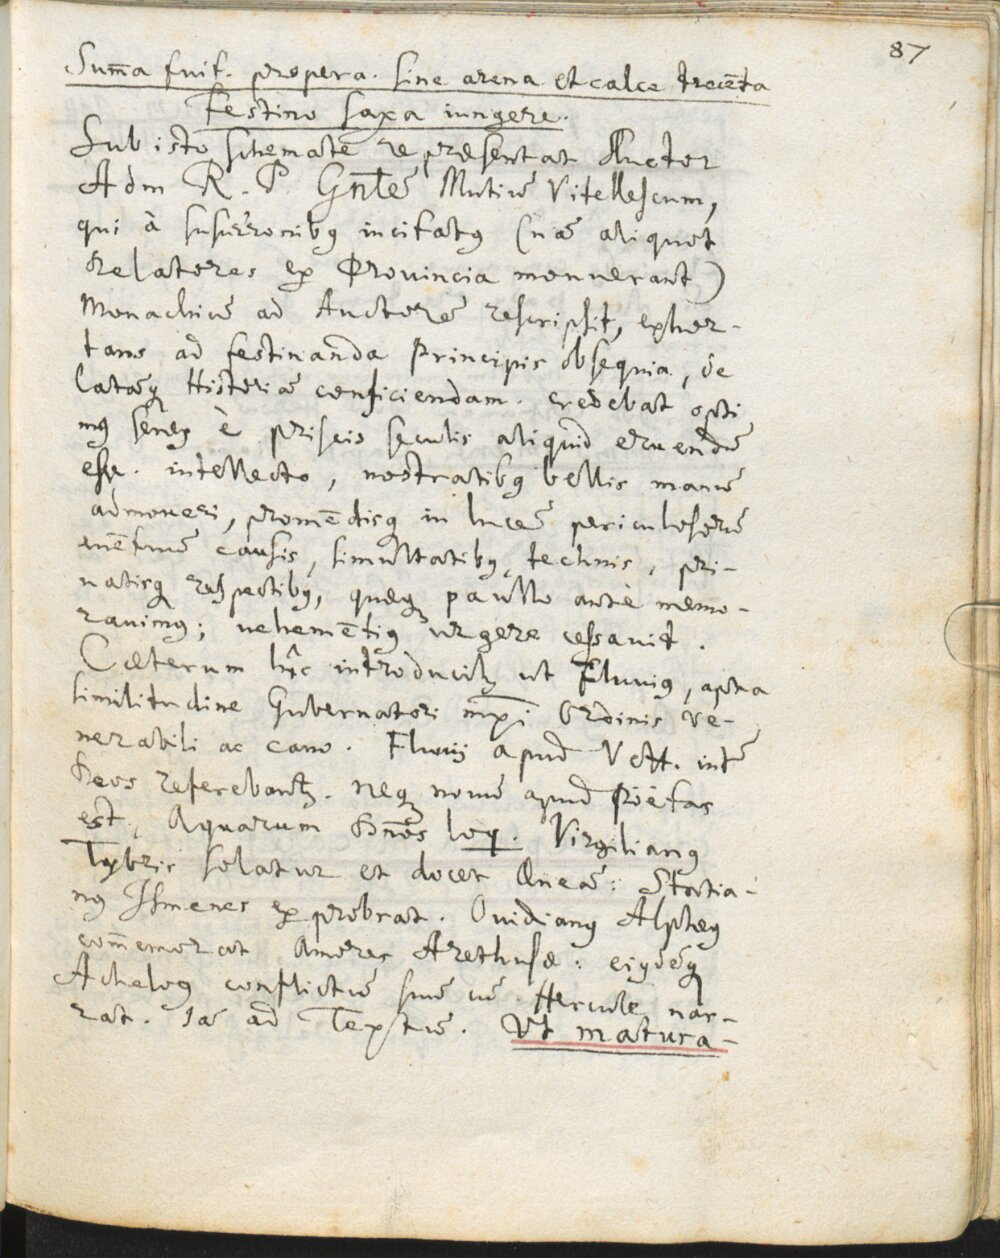 87
Sum̄a fuit. propera. sine arena et calce trecēta
festino saxa iungere.
Sub isto schemate repræsentat Auctor
Adm R. P. Gn̄lē Mutiū Vitellescum,
qui à susurronibꝯ incitatꝯ (nā aliquot
Relatores ex Prouincia monuerant)
Monachiū ad Auctorē rescripsit, exhor-
tans ad festinanda Principis obsequia, de
latamqꝫ Historiā conficiendam. credebat opti
mꝯ senex è priscis seculis aliquid eruendū
esse. intellecto, nostratibꝯ bellis manū
admoveri, promēdisqꝫ in lucē periculosorū
motuum causis, simultatibꝯ, technis, pri-
uatisqꝫ respectibꝯ, quæqꝫ paullo antè memo-
rauimꝯ; uehementiꝯ urgere cessauit.
Cæterum hîc introducit̃ ut Fluuiꝯ, apta
similitudine Gubernatori mx̄i Ordinis ve-
nerabili ac cano. Fluuij apud Vett. intē
Deos referebant̃. neqꝫ nouū apud Poëtas
est, Aquarum Dn̄os loq. Virgilianꝯ
Tybris solatur et docet Æneā: Statia-
nꝯ Ismenes exprobrat. Ouidianꝯ Alpheꝯ
com̄emorat Amores Arethusæ: eiꝯdēqꝫ
Acheloꝯ conflictū suū cū Hercule nar-
rat. Iā ad Textū. Vt matura-